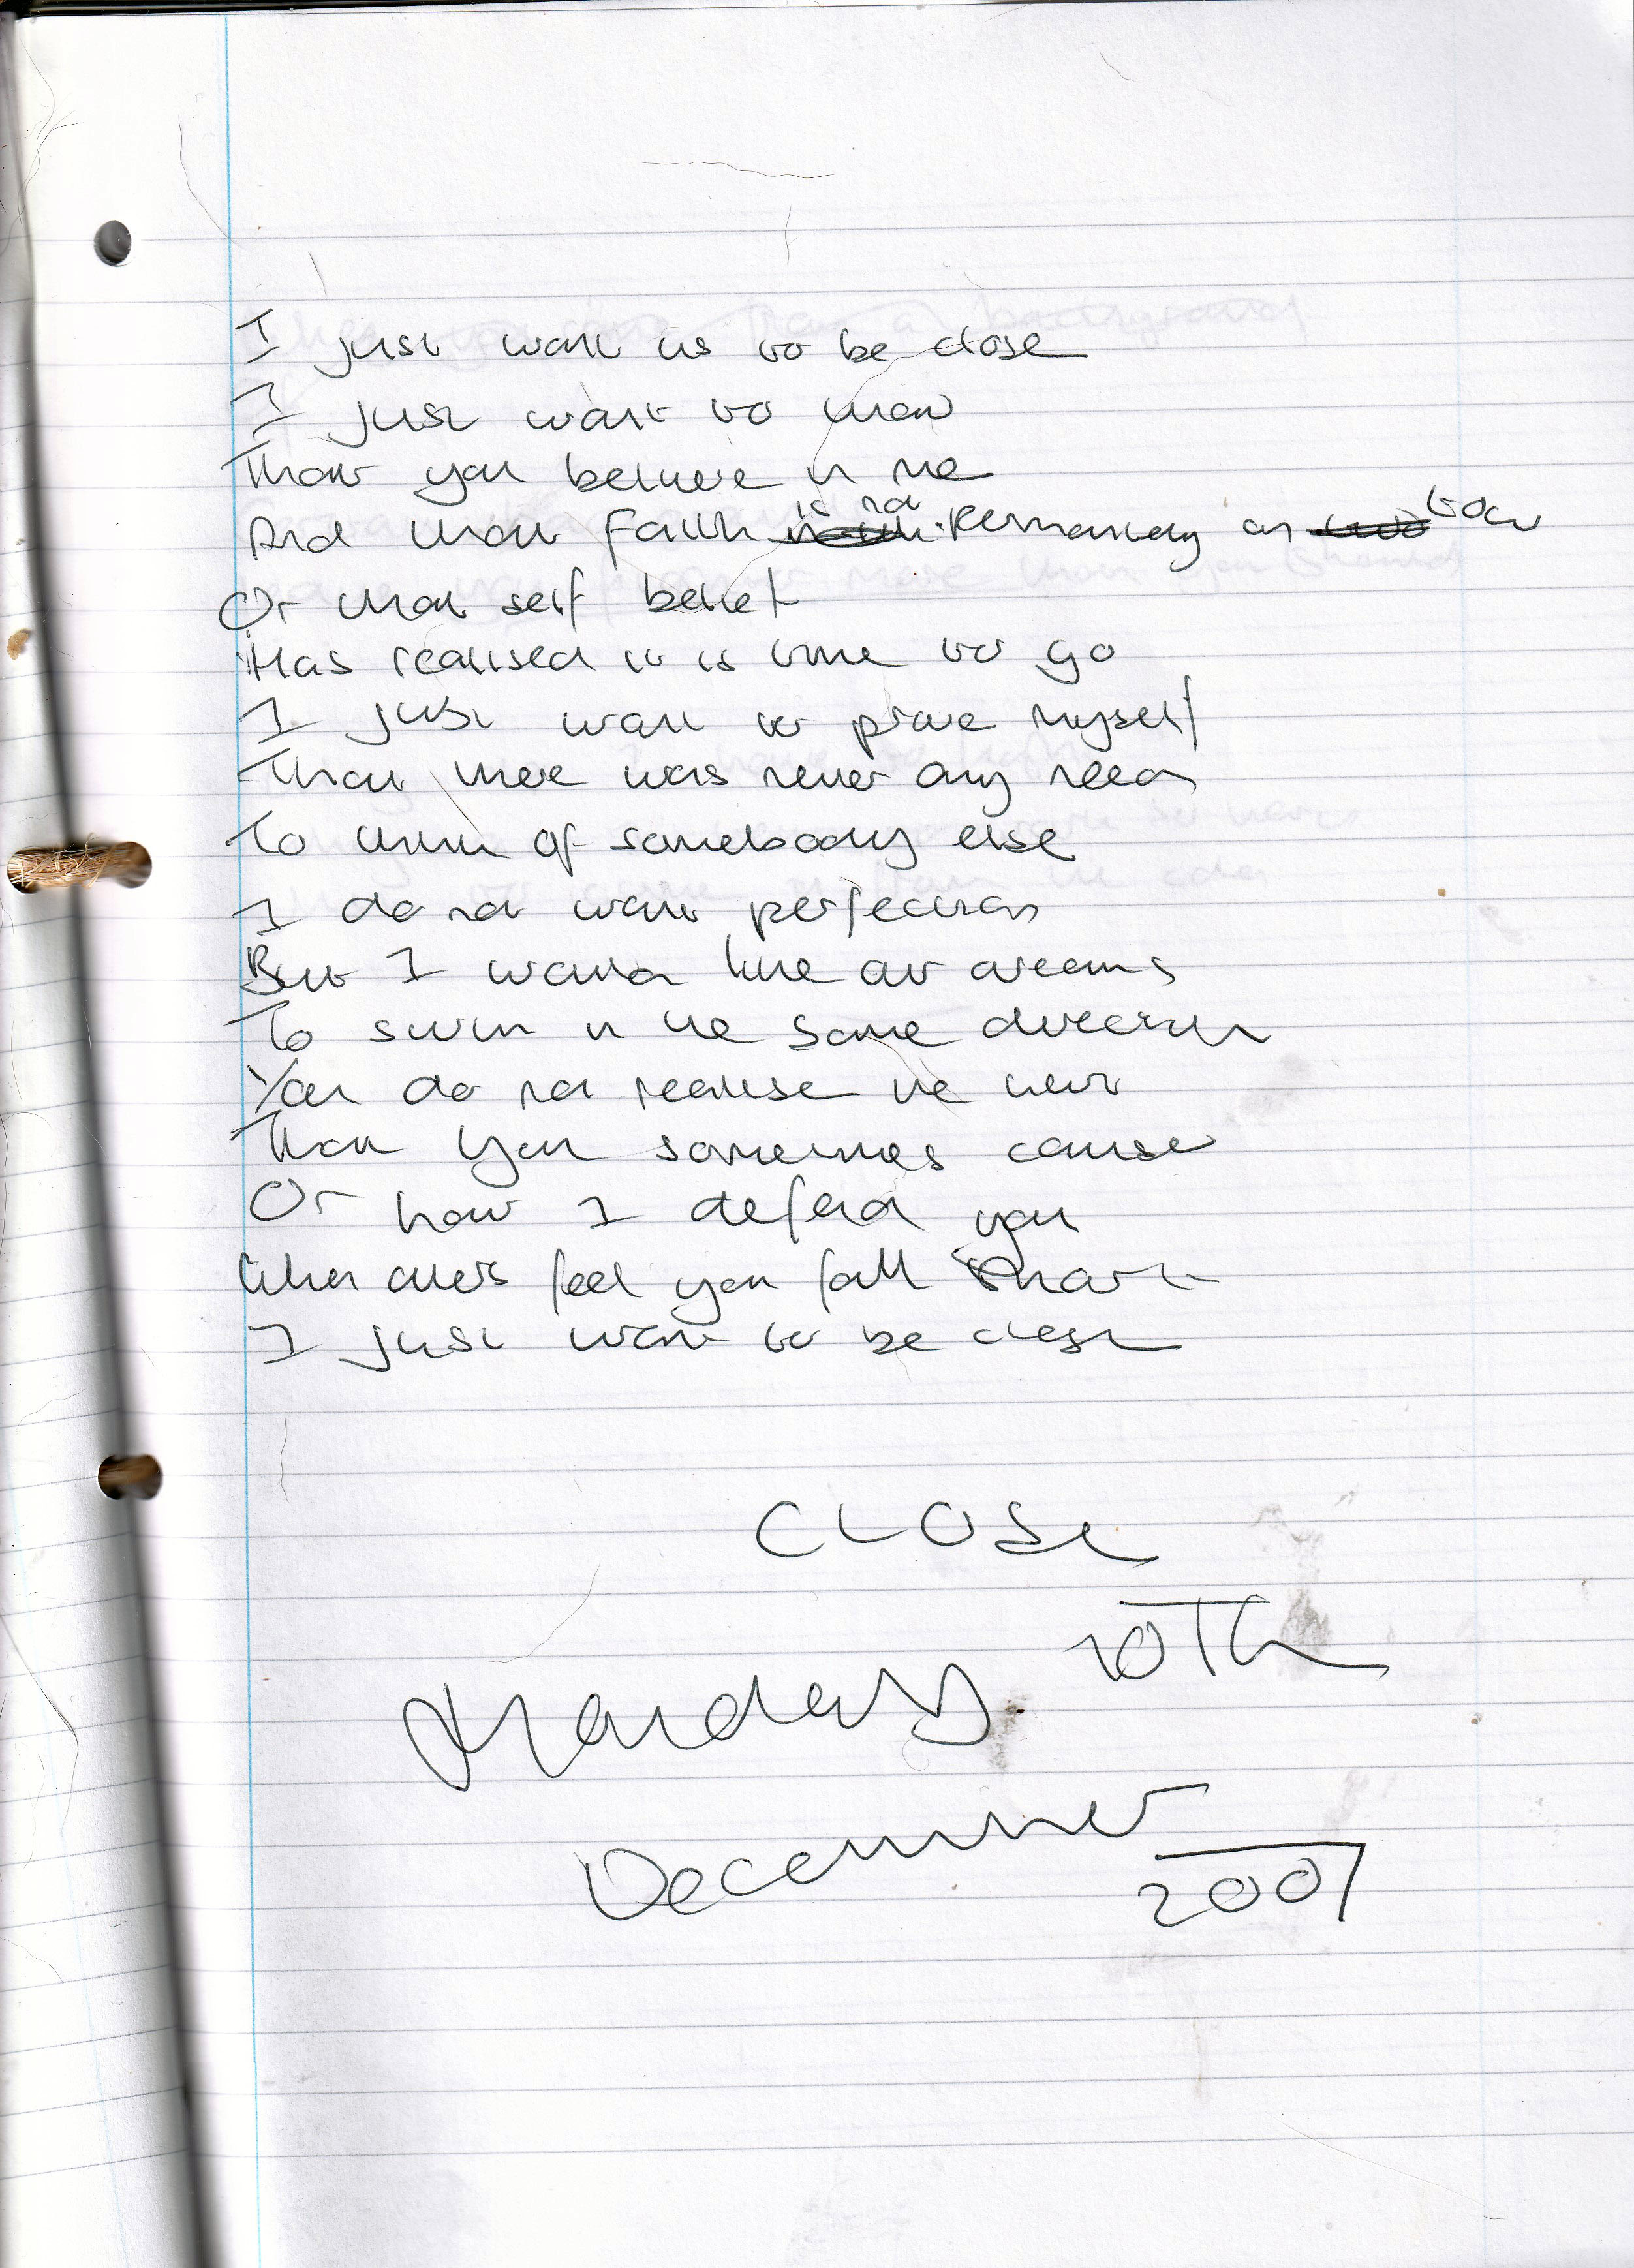 I just want us to be close
I just want to know
That you believe in me
And that faith is not permanently on tour
Or that self belief
Has realised it is time to go
I just want to prove myself
That there was never any need
To think of somebody else
I do not want perfection
But I want our dreams
To swim in the same direction
You do not realise the hurt
That you sometimes cause
Or how I defend you
When others feel you fall short
I just want to be close
CLOSE
Monday 10Th
December
2007